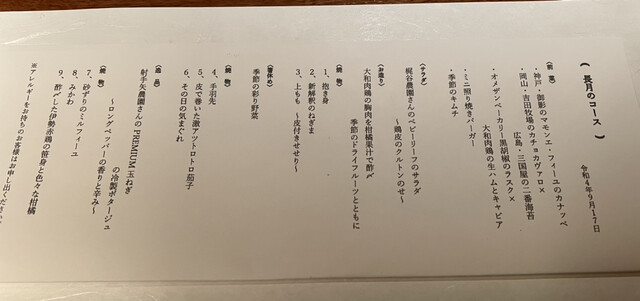 《 長月のコース 》
令和4年9月17日
(前菜)
・神戸・御影のマモンエ・フィーユのカナッペ
・岡山・吉田牧場のカチョカヴァロ×
広島・三国屋の二番海苔
・オメザンベーカリー黒胡椒のラスク×
大和肉鶏の生ハムとキャビア
・ミニ照り焼きバーガー
・季節のキムチ
(サラダ)
梶谷農園さんのベビーリーフのサラダ
～鶏皮のクルトンのせ～
(お造り)
大和肉鶏の胸肉を柑橘果汁で酢〆
季節のドライフルーツとともに
(焼 物)
1、抱き身
2、新解釈のねぎま
3、上もも ～皮付きせせり～
(箸休め)
季節の彩り野菜
(焼 物)
4、手羽先
5、皮で巻いた激アツトロトロ茄子
6、その日の気まぐれ
(逸 品)
射手矢農園さんの PREMIUM 玉ねぎ
の冷製ポタージュ
～ロングペッパーの香りと辛み～
(焼 物)
7、砂ずりのミルフィーユ
8、みかわ
9、酢〆した伊勢赤鶏の笹身と色々な柑橘
※アレルギーをお持ちのお客様はお申し出ください